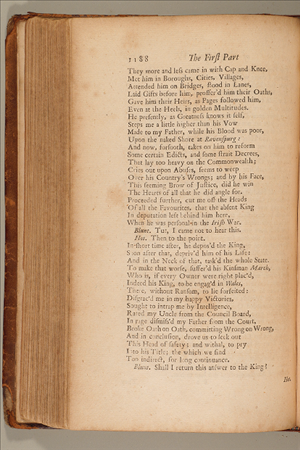 1188 The First Part
They more and less came in with Cap and Knee,
Met him in Boroughs, Cities, Villages,
Attended him on Bridges, stood in Lanes,
Laid Gifts before him, proffer'd him their Oaths,
Gave him their Heirs, as Pages followed him,
Even at the Heels, in golden Multitudes.
He presently, as Greatness knows it self,
Steps me a little higher than his Vow
Made to my Father, while his Blood was poor,
Upon the naked Shore at Ravenspurg:
And now, forsooth, takes on him to reform
Some certain Edicts, and some strait Decrees,
That lay too heavy on the Commonwealth;
Cries out upon Abuses, seems to weep
Over his Country's Wrongs; and by his Face,
This seeming Brow of Justice, did he win
The Hearts of all that he did angle for.
Proceeded further, cut me off the Heads
Of all the Favourites, that the absent King
In deputation left behind him here,
When he was personal in the Irish War.
Blunt. Tut, I came not to hear this.
Hot. Then to the point.
In short time after, he depos'd the King,
Soon after that, depriv'd him of his Life:
And in the Neck of that, task'd the whole State.
To make that worse, suffer'd his Kinsman March,
Who is, if every Owner were right plac'd,
Indeed his King, to be engag'd in Wales,
There, without Ransom, to lie forfeited:
Disgrac'd me in my happy Victories,
Sought to intrap me by Intelligence,
Rated my Uncle from the Council Board,
In rage dismiss'd my Father from the Court,
Broke Oath on Oath, committing Wrong on Wrong,
And in conclusion, drove us to seek out
This Head of safety; and withal, to pry
Into his Title; the which we find
Too indirect, for long continuance.
Blunt. Shall I return this answer to the King?